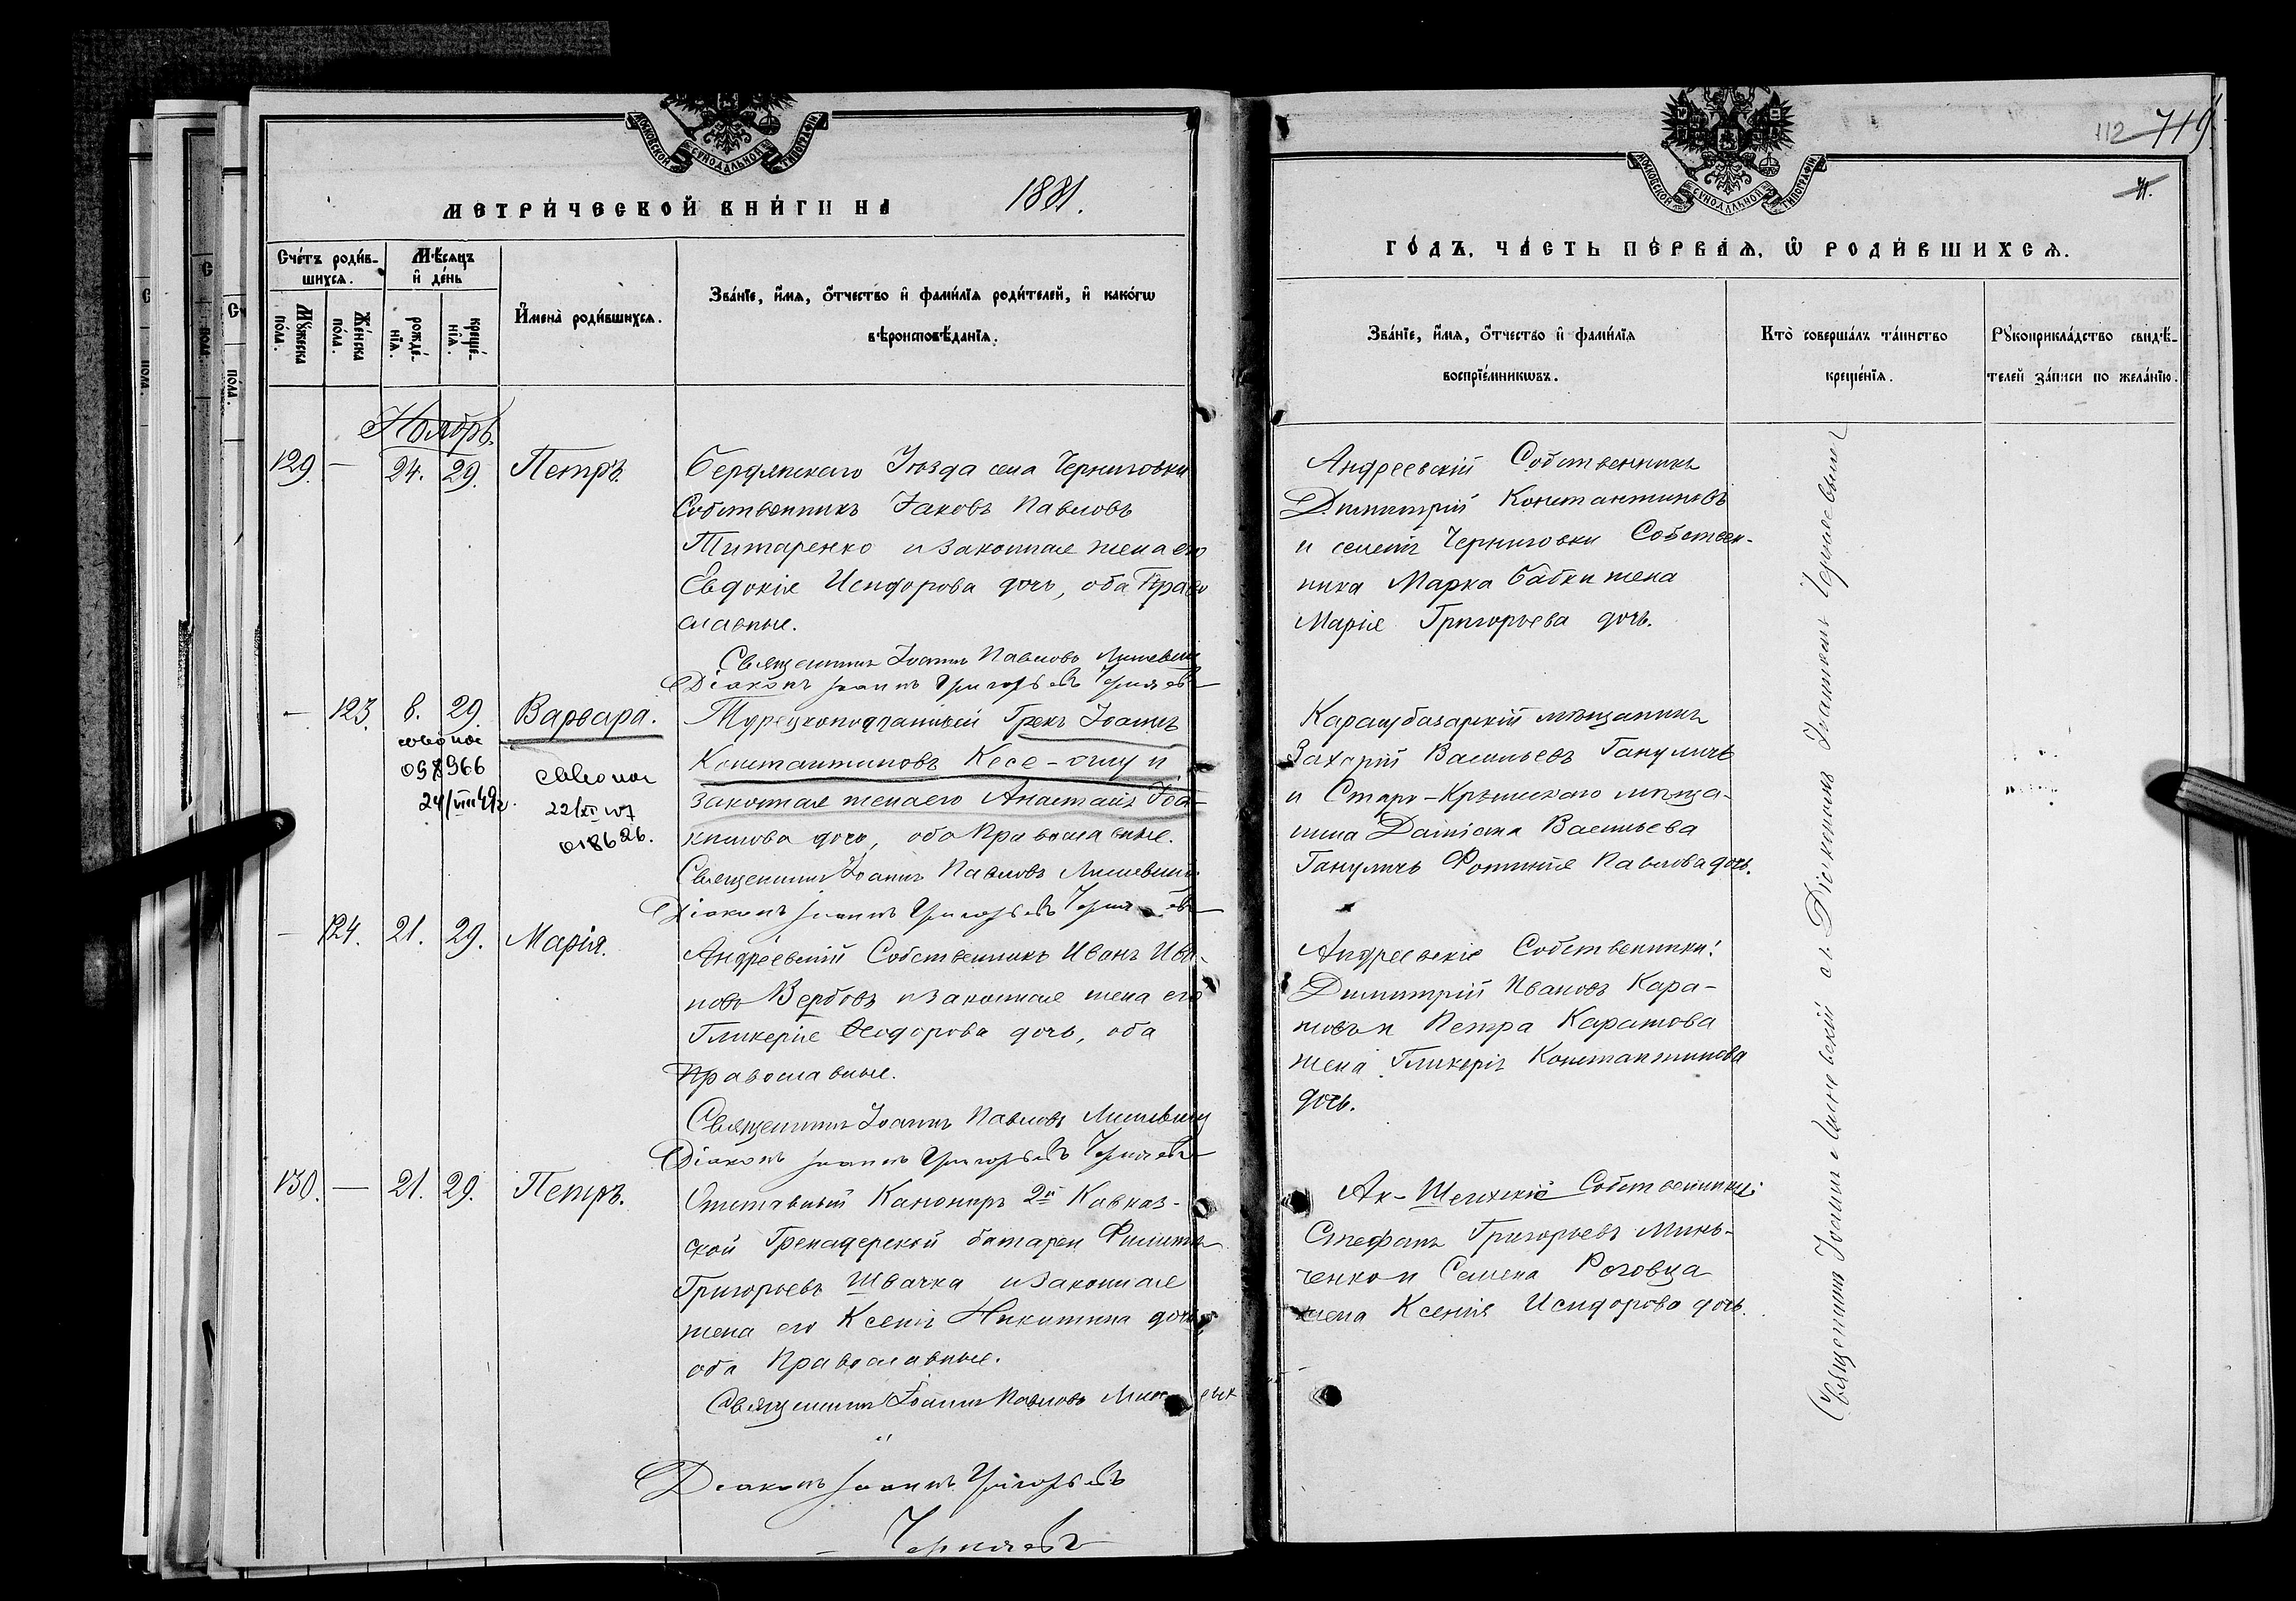 МОСКОВСКОЙ СѴНОДАЛЬНОЙ ТИПОГРАФІИ
МЕТРИЧЕСКОЙ КНИГИ НА 1881.
Счетъ родив-
шихся.
Мужеска пола.
Женска пола.
Мѣсяцъ и день
рожденія.
крещенія.
Имена родившихся.
Званіе, имя, отчество и фамилія родителей, и какогω
вѣроисповѣданія.
Ноябрь.
129. — 24. 29. Петръ.
Бердянскаго Уѣзда села Черниговки
Собственникъ Іаковъ Павловъ
Титаренко и законная жена его
Евдокія Исидорова дочь, оба Право
славные.
Священникъ Іоаннъ Павловъ
Діаконъ Іоаннъ Григорьевъ Черняевъ
— 123. 8. 29. Варвара.
098966
24/VIII 49г.
22/XI
018626.
Турецкоподданный Грекъ Іоаннъ
Константиновъ Кесе-оглу и
законная жена его Анастасія Іоа-
кимова дочь, оба Православные.
Священникъ Іоаннъ Павловъ
Діаконъ Іоаннъ Григорьевъ Черняевъ
— 124. 21. 29. Марія.
Андреевскій Собственникъ Иванъ Ива-
новъ Вербовъ и законная жена его
Гликерія Ѳеодорова дочь, оба
Православные.
Священникъ Іоаннъ Павловъ
Діаконъ Іоаннъ Григорьевъ Черняевъ
130. — 21. 29. Петръ.
Отставный Канониръ 2й Кавказ-
ской Гренадерской батареи Филиппъ
Григорьевъ Швачка и законная
жена его Ксенія Никитина дочь,
оба Православные.
Священникъ Іоаннъ Павловъ
и
Діаконъ Іоаннъ Григорьевъ
Черняевъ
112 719
МОСКОВСКОЙ СѴНОДАЛЬНОЙ ТИПОГРАФІИ
ГОДЪ, ЧАСТЬ ПЕРВАЯ, Ѡ РОДИВШИХСЯ.
Званіе, имя, отчество и фамилія
воспріемникωвъ.
Кто совершалъ таинство
крещенія.
Рукоприкладство свидѣ-
телей записи по желанію.
Андреевскій Собственникъ
Димитрій Константиновъ
и селенія Черниговки Собствен-
ника Марка Бабки жена
Марія Григорьева дочь.
Карасубазарскій мѣщанинъ
Захарій Васильевъ Гануличъ
и Старо-Крымскаго мѣща-
нина Даміана Васильева
Гануличъ Фотинія Павлова дочь.
Андреевскіе Собственники:
Димитрій Ивановъ Кара-
товъ и Петра Каратова
жена Гликерія Константинова
дочь.
Ак-Шеихскіе Собственники:
Стефанъ Григорьевъ Минь-
ченко и Семена Роговца
жена Ксенія Исидорова дочь.
Священникъ Іоаннъ с Діакономъ Іоанномъ Черняевымъ